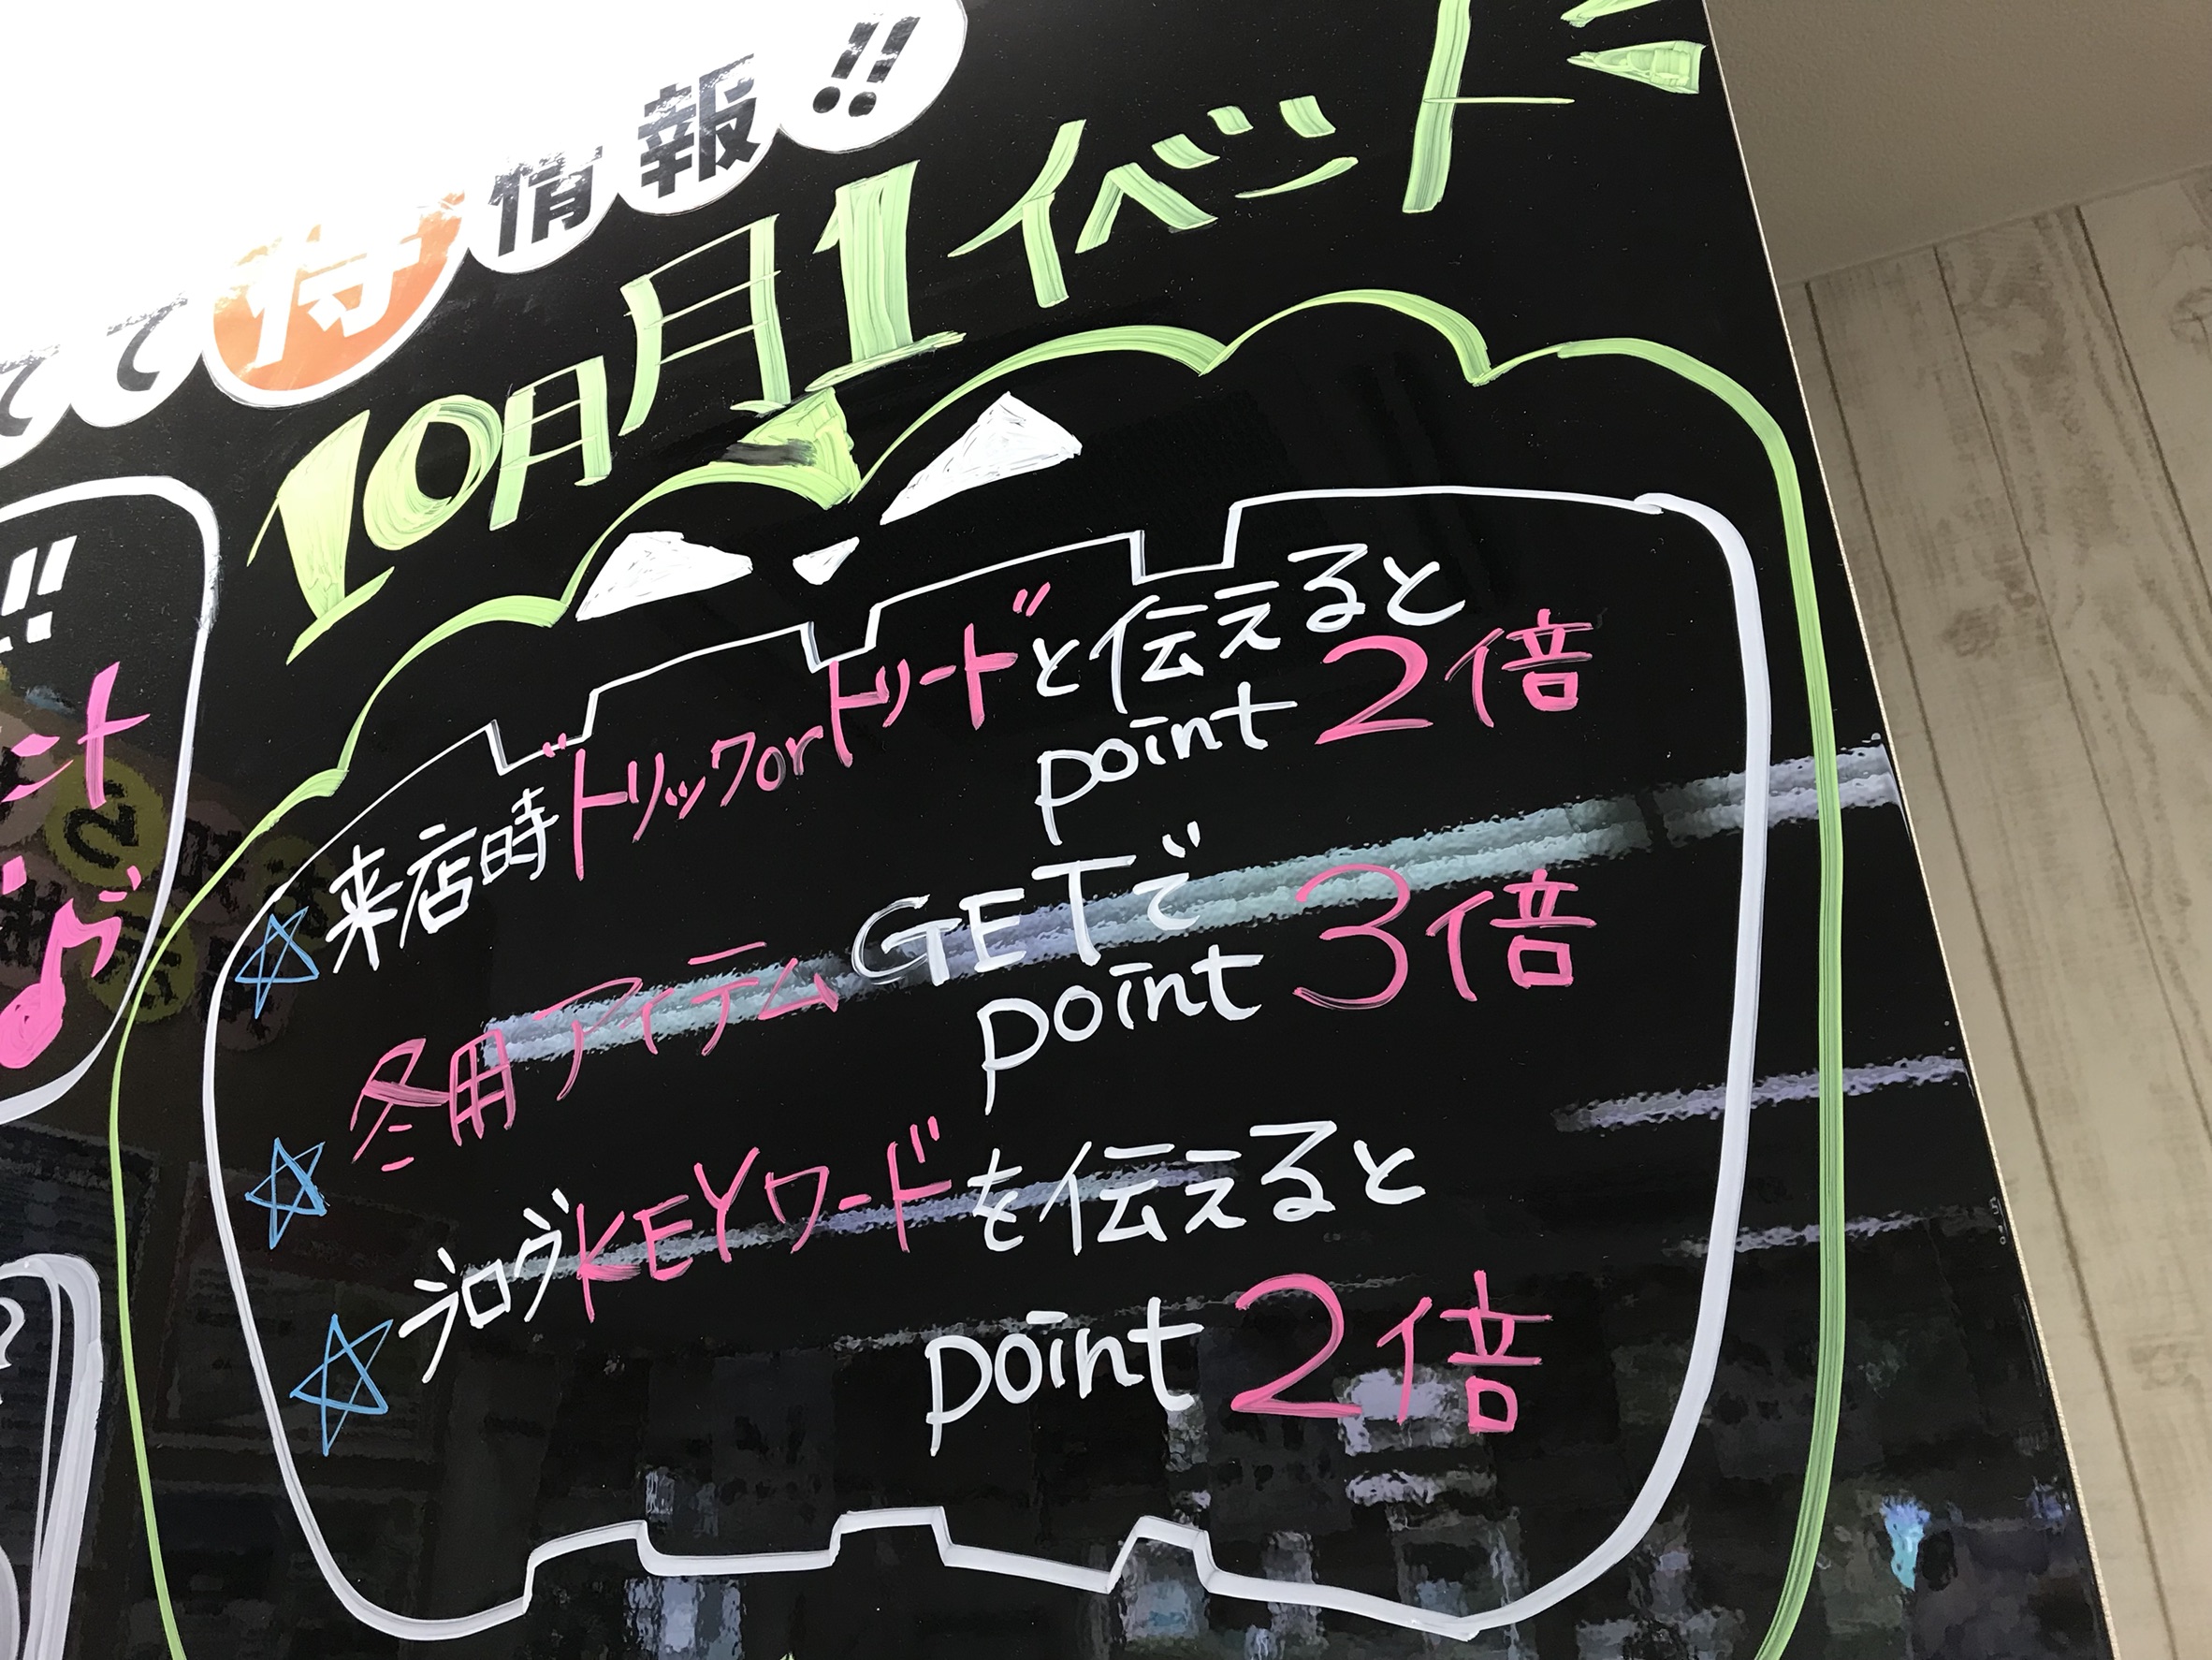 て得情報!!
10月月1イベント
来店時トリックorトリートと伝えると
point 2倍
冬用アイテムGETで
point 3倍
ブログKEYワードを伝えると
point 2倍